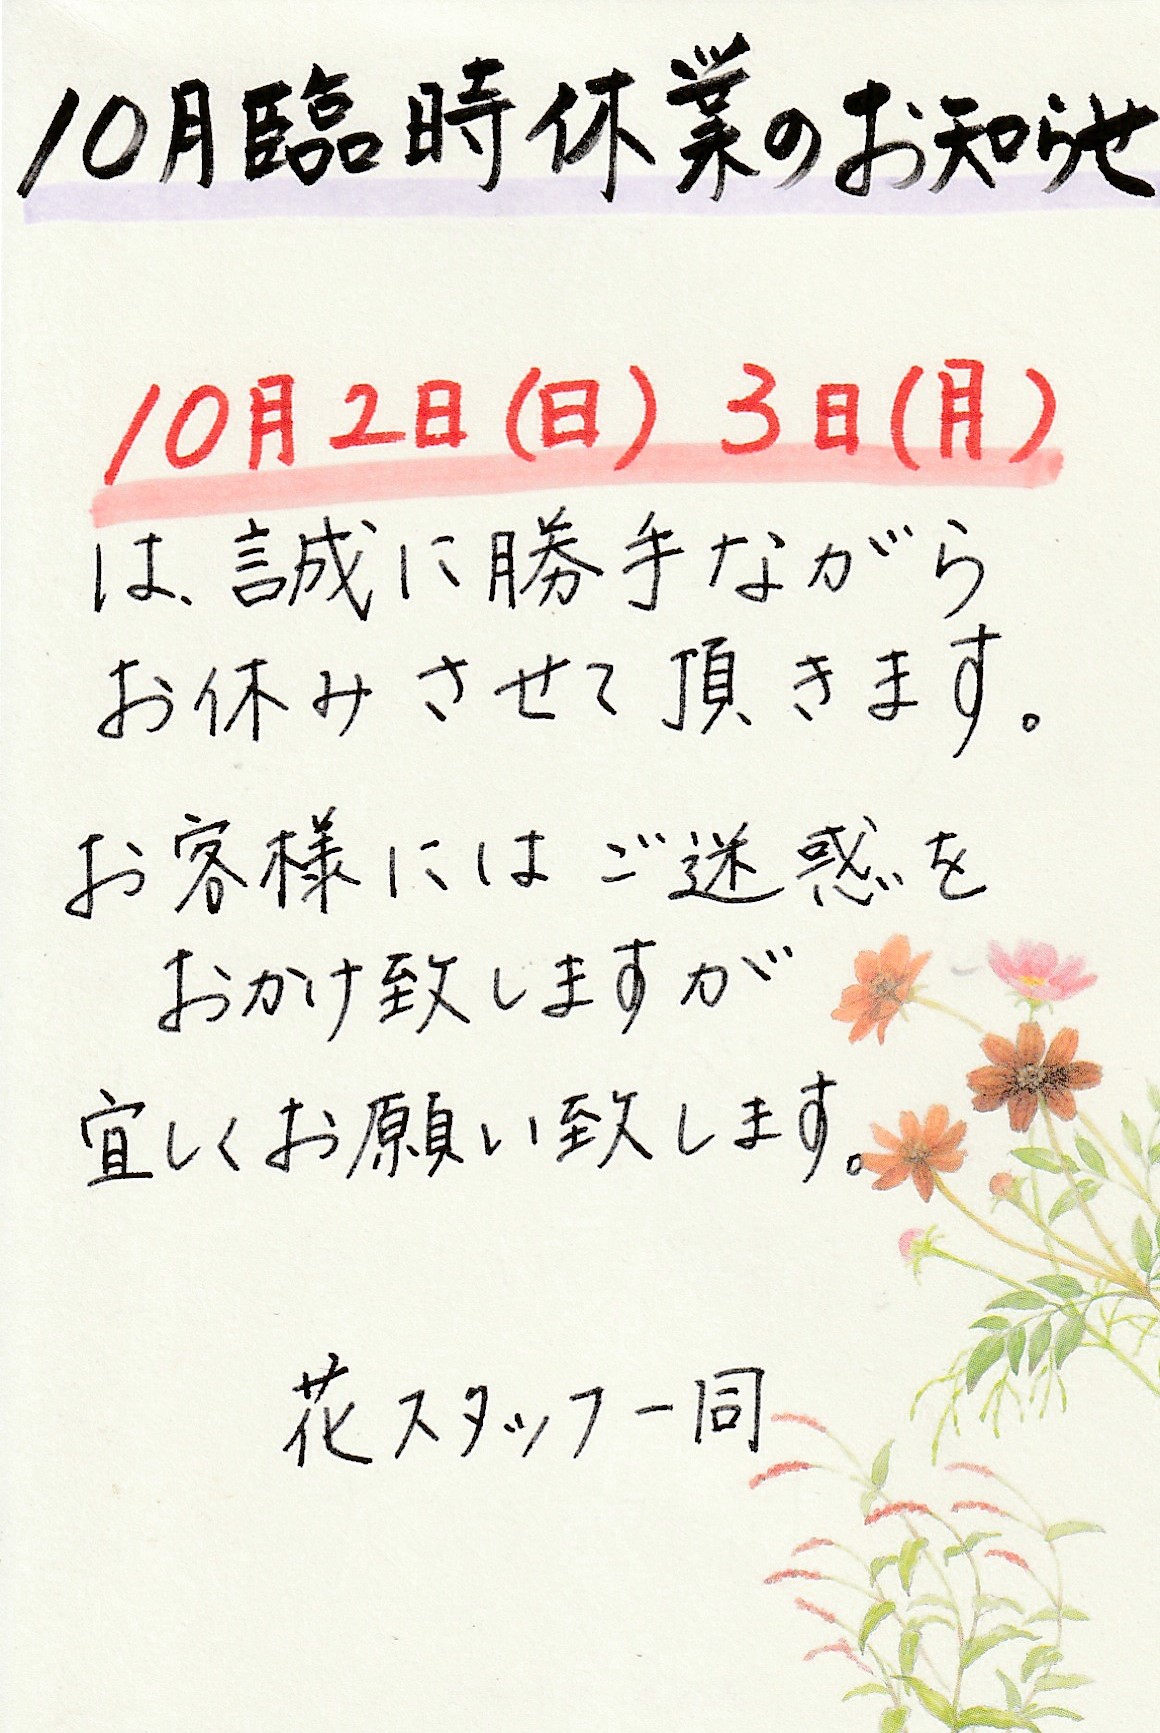 10月臨時休業のお知らせ
10月2日(日) 3日(月)
は、誠に勝手ながら
お休みさせて頂きます。
お客様にはご迷惑を
おかけ致しますが
宜しくお願い致します。
花スタッフ一同